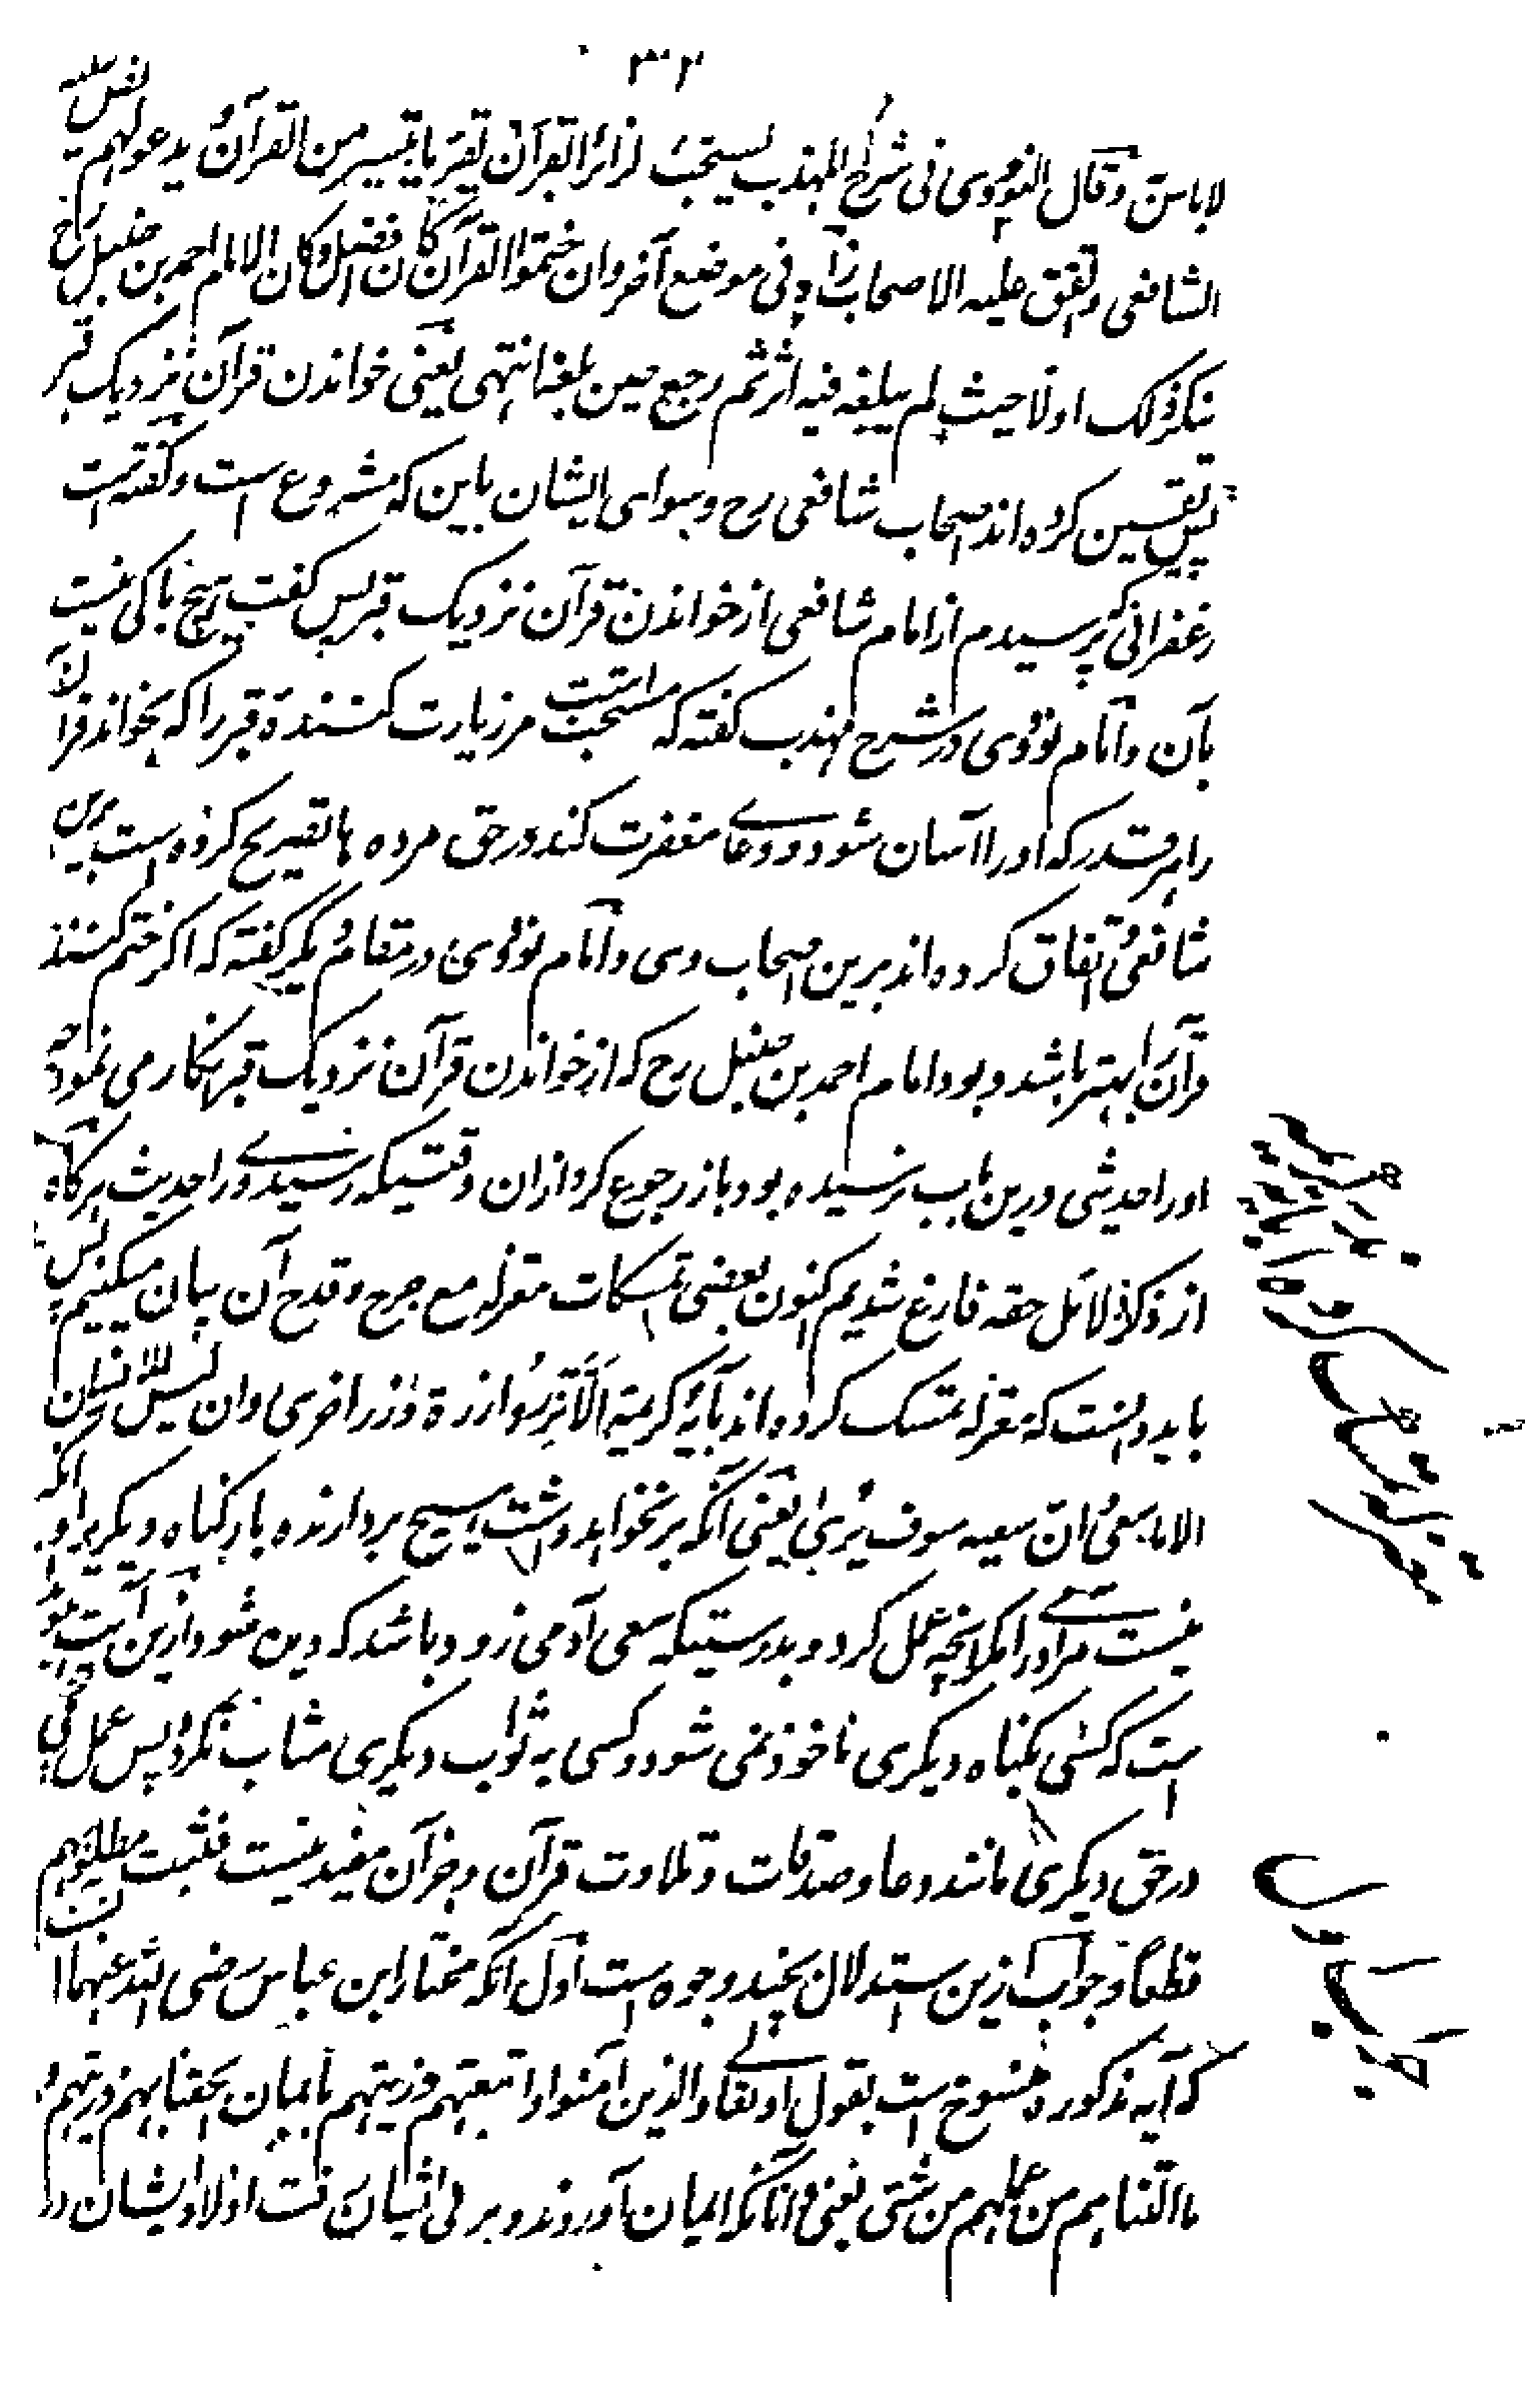 ۳۲
لاباس به وقال النووی فی شرح المهذب یستحب لزائر القبر ان یقرء ما تیسر من القرآن و یدعو لهم نص علیه
الشافعی واتفق علیه الاصحاب زاد فی موضع آخر وان ختموا القرآن کان افضل وکان الامام احمد بن حنبل رح
ینکر ذلک اولا حیث لم یبلغه فیه اثر ثم رجع حین بلغه انتهی یعنی خواندن قرآن نزدیک قبر
پس یقین کرده اند اصحاب شافعی رح وسوای ایشان باین که مشروع است وگفته است
زعفرانی که پرسیدم از امام شافعی از خواندن قرآن نزدیک قبر پس گفت هیچ باکی نیست
بآن وامام نووی در شرح مهذب گفته که مستحب است مر زیارت کننده قبر را که بخواند قرآن
را هر قدر که او را آسان شود ودعای مغفرت کند در حق مرده ها تصریح کرده است برین
شافعی واتفاق کرده اند برین اصحاب وی وامام نووی در مقام دیگر گفته که اگر ختم کنند
قرآن را بهتر باشد وبود امام احمد بن حنبل رح که از خواندن قرآن نزدیک قبر انکار می نمود
او را حدیثی درین باب نرسیده بود باز رجوع کرد ازان وقتیکه رسید وی را حدیث هرگاه
از ذکر دلائل حقه فارغ شدیم اکنون بعضی تمسکات معتزله مع جرح وقدح آن بیان میکنیم پس
باید دانست که معتزله تمسک کرده اند بآیه کریمه الا تزر وازرة وزر اخری وان لیس للانسان
الا ما سعی وان سعیه سوف یری یعنی آنکه بر نخواهد داشت هیچ بردارنده بار گناه دیگری را و آنکه
نیست مر آدمی را مگر آنچه عمل کرد و بدرستیکه سعی آدمی زود باشد که دیده شود ازین آیت
است که کسی بگناه دیگری ماخوذ نمی شود وکسی به ثواب دیگری مثاب نگردد پس عمل
در حق دیگری مانند دعا وصدقات وتلاوت قرآن وجز آن مفید نیست فثبت مطلوبهم
قطعا وجواب ازین استدلال بچند وجوه است اول آنکه مختار ابن عباس رضی الله عنهما
که آیه مذکوره منسوخ است بقول او تعالی والذین آمنوا واتبعتهم ذریتهم بایمان الحقنا بهم ذریتهم و
ما التناهم من عملهم من شئی یعنی وآنانکه ایمان آوردند و پیروی ایشان اولاد ایشان در